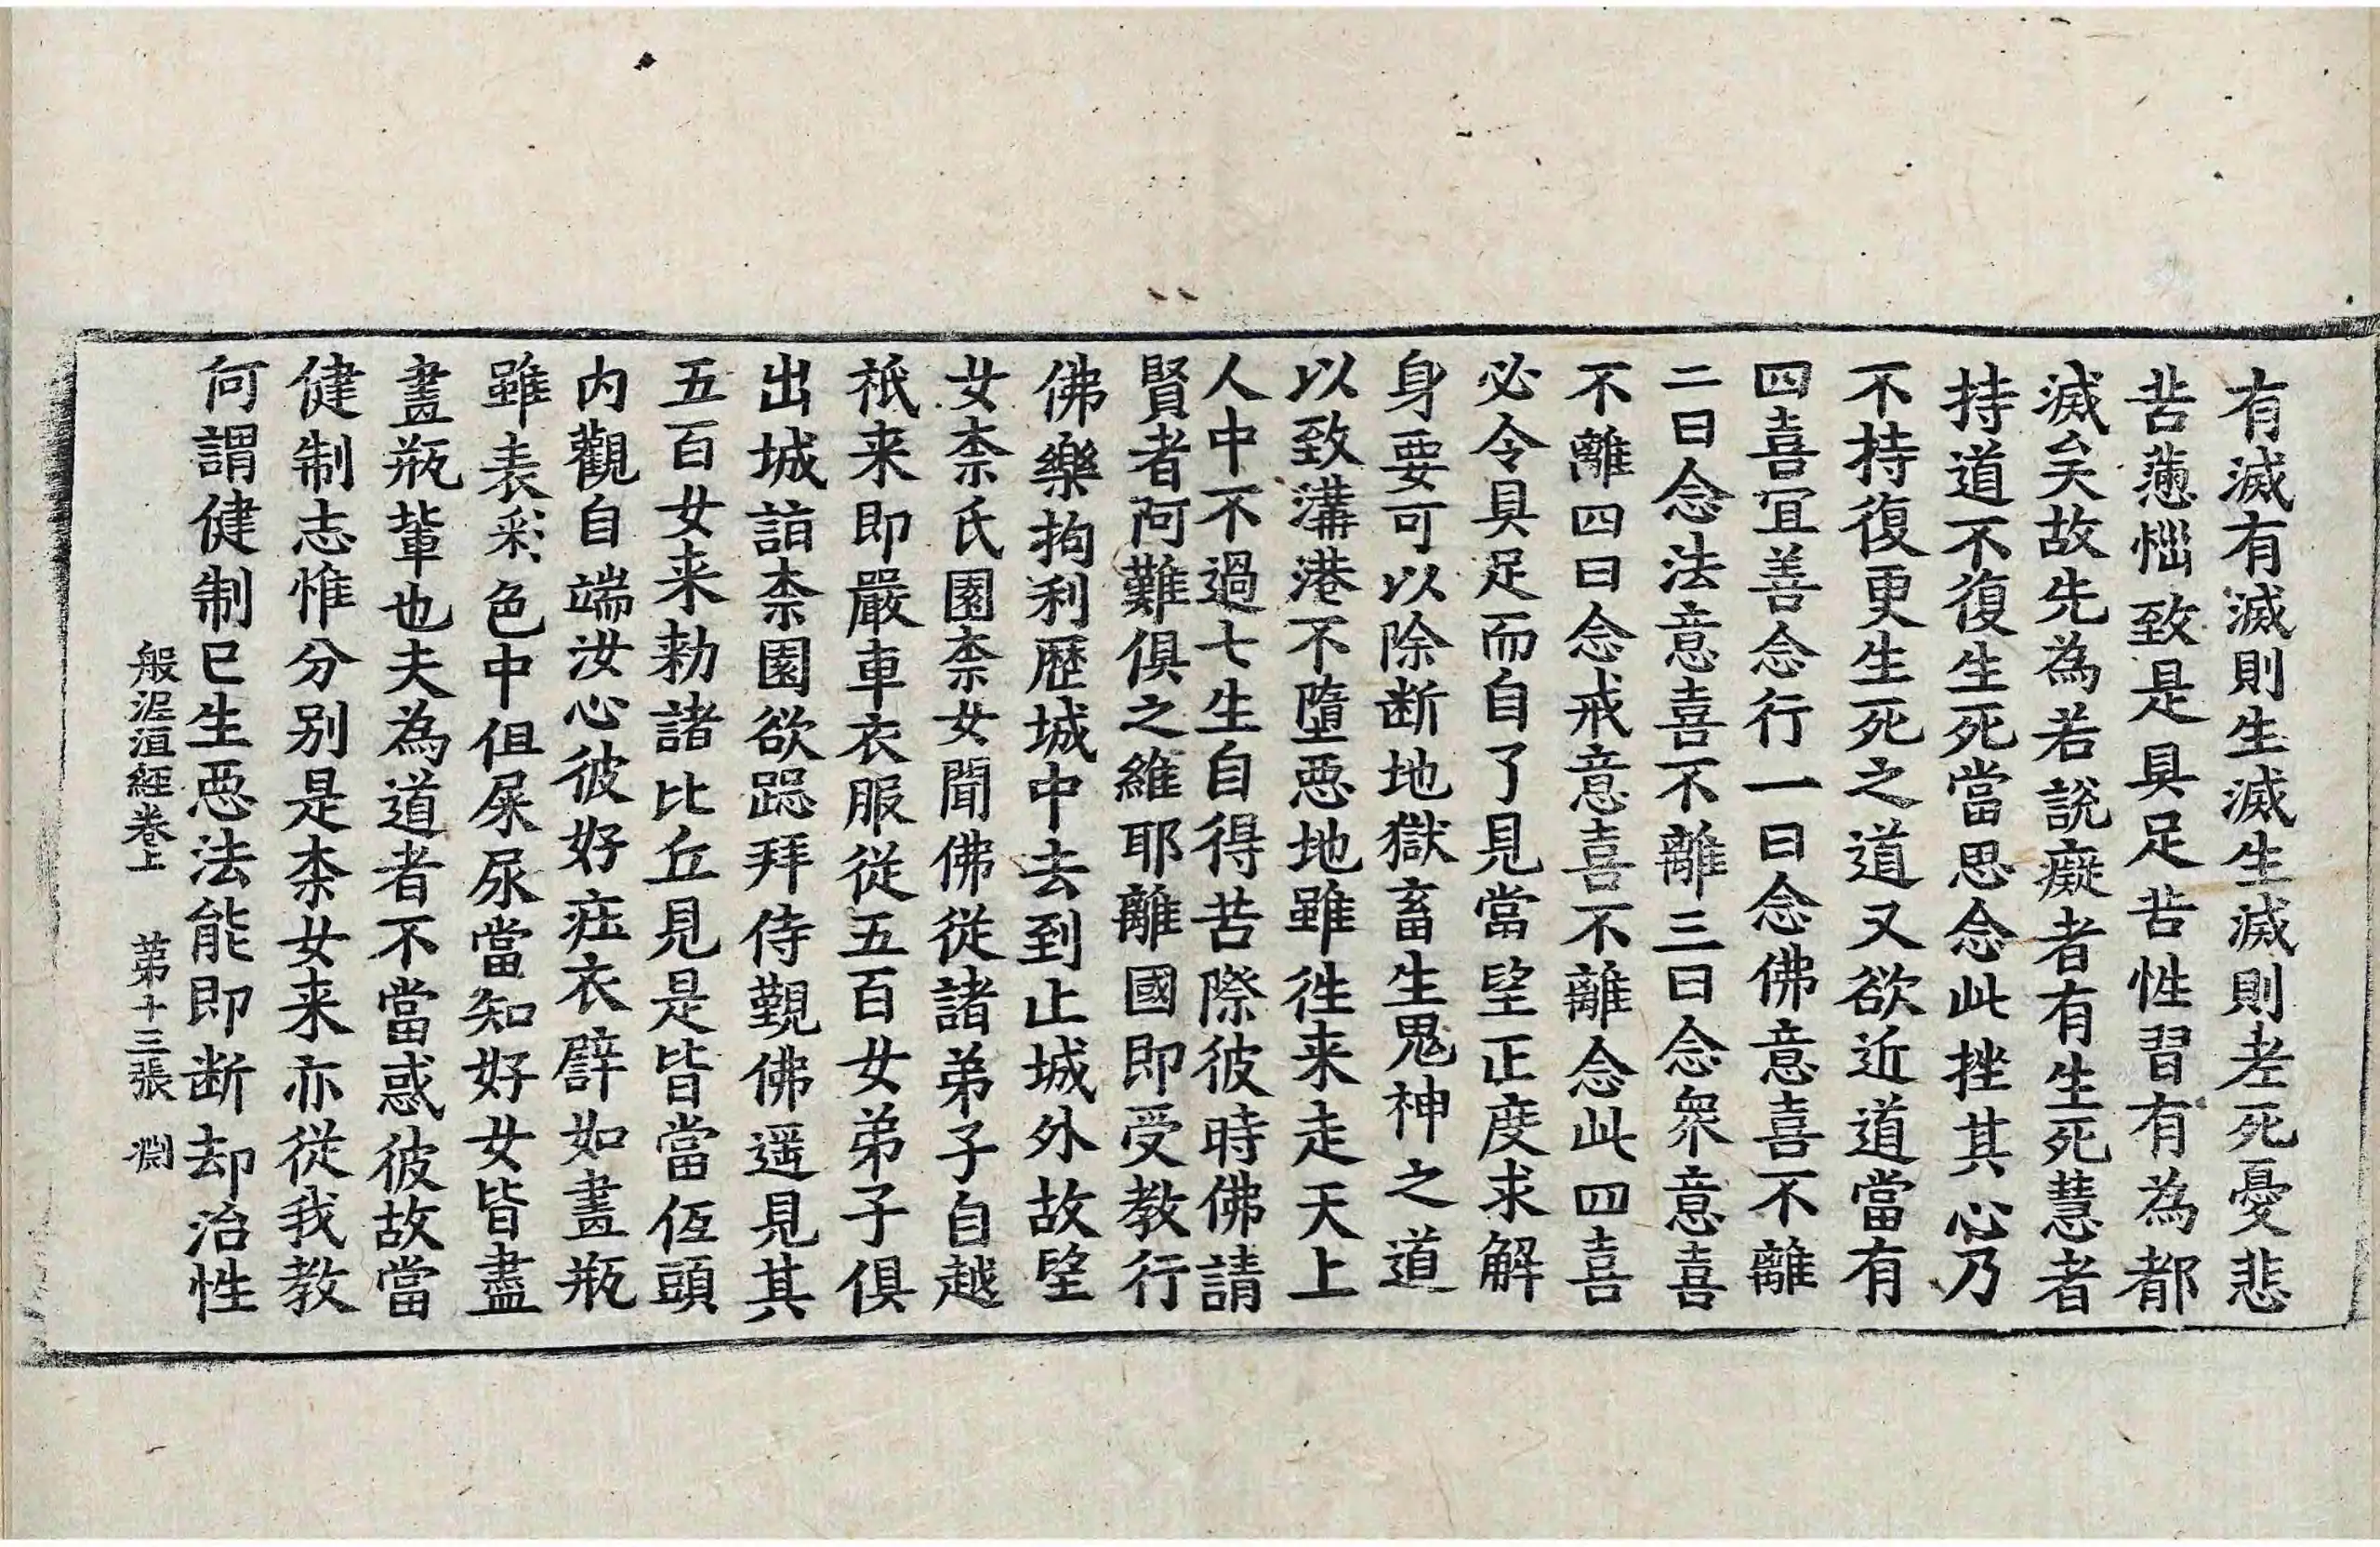 有滅有滅則生滅生滅則老死憂悲
苦懣惱致是具足苦性習有為都
滅矣故先為若說癡者有生死慧者
持道不復生死當思念此挫其心乃
不持復更生死之道又欲近道當有
四喜宜善念行一曰念佛意喜不離
二曰念法意喜不離三曰念衆意喜
不離四曰念戒意喜不離念此四喜
必令具足而自了見當望正度求解
身要可以除断地獄畜生鬼神之道
以致溝港不墮惡地雖徃来走天上
人中不過七生自得苦際彼時佛請
賢者阿難俱之維耶離國即受教行
佛樂拘利歷城中去到止城外故望
女柰氏園柰女聞佛從諸弟子自越
祇来即嚴車衣服從五百女弟子俱
出城詣柰園欲跽拜侍覲佛遥見其
五百女来勑諸比丘見是皆當低頭
内觀自端汝心彼好莊衣譬如畫瓶
雖表彩色中但屎尿當知好女皆盡
畫瓶輩也夫為道者不當惑彼故當
健制志惟分别是柰女来亦從我教
何謂健制已生惡法能即断却治性
般泥洹經卷上　第十三張　淵